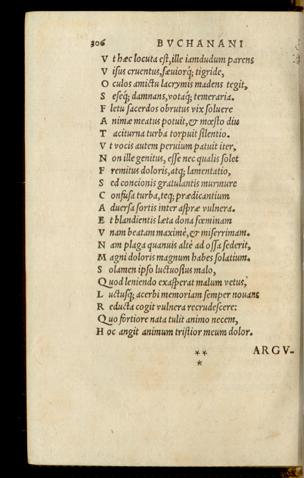 306 BVCHANANI
V t hæc locuta est, ille iamdudum parens
V isus cruentus, sæuiorq; tigride,
O culos amictu lacrymis madens tegit,
S eseq; damnans, votaq; temeraria.
F letu sacerdos obrutus vix soluere
A nimæ meatus potuit, & mœsto diu
T aciturna turba torpuit silentio.
V t vocis autem peruium patuit iter,
N on ille genitus, esse nec qualis solet
F remitus doloris, atq; lamentatio,
S ed concionis gratulantis murmure
C onfusa turba, teq; prædicantium
A duersa fortis inter aspræ vulnera.
E t blandientis læta dona fœminam
V nam beatam maximè, & miserrimam.
N am plaga quanuis altè ad ossa sederit,
M agni doloris magnum habes solatium.
S olamen ipso luctuosius malo,
Q uod leniendo exasperat malum vetus,
L uctusq; acerbi memoriam semper nouans
R educta cogit vulnera recrudescere:
Q uo fortiore nata tulit animo necem,
H oc angit animum tristior meum dolor.
⁎⁎
⁎
ARGV-